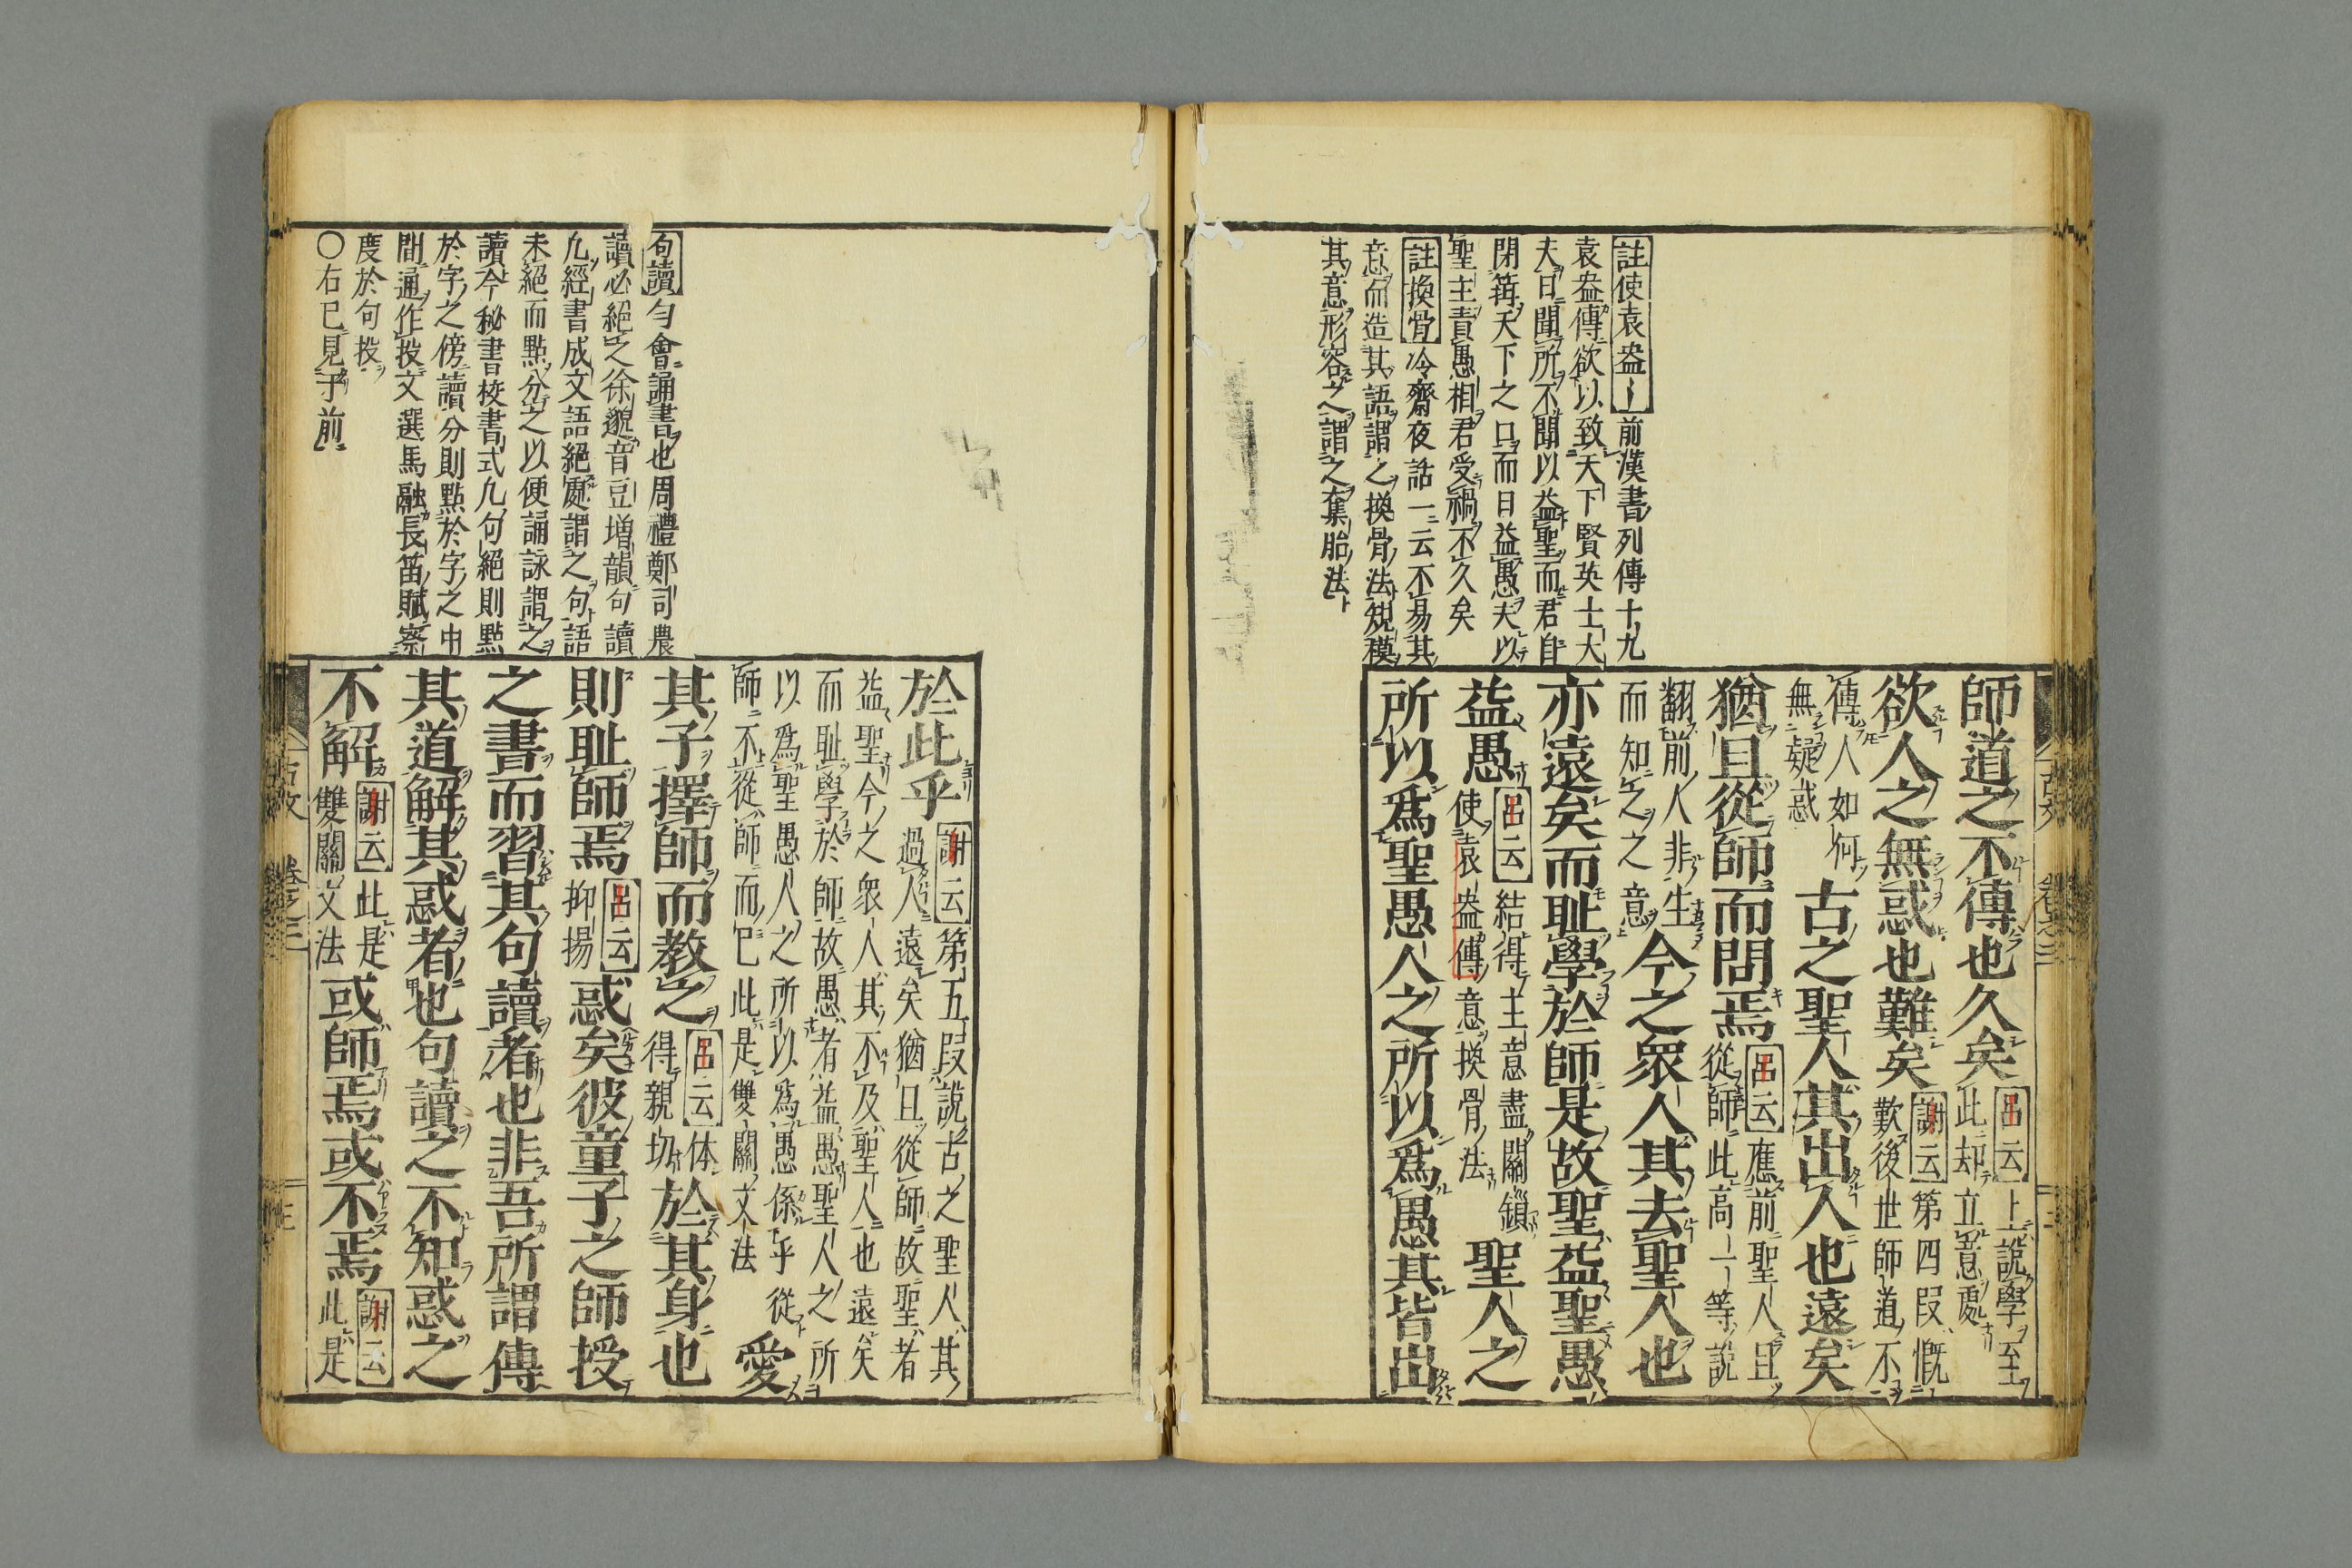 註使袁盎〻前漢書列傳十九
袁盎傳欲以致天下賢英士大
夫日聞所不聞以益聖而君自
閉箝天下之口而日益愚夫以
聖主責愚相君受禍不久矣
註換骨冷齋夜話一云不易其
意而造其語謂之換骨法規模
其意形容之謂之奪胎法
師道之不傳也久矣 呂云上說學至此却立意處
欲人之無惑也難矣 謝云第四段慨歎後世師道不
傳人如何無疑惑 古之聖人其出人也遠矣
猶且從師而問焉 呂云應前聖人且從師此高一等說
翻前人非生而知之之意 今之衆人其去聖人也
亦遠矣而耻學於師是故聖益聖愚
益愚 呂云結得主意盡關鎖使袁盎傳意換骨法 聖人之
所以爲聖愚人之所以爲愚其皆出
古文 卷之三
句讀勻會誦書也周禮鄭司農
讀必絕之徐邈音豆增韻句讀
凢經書成文語絕處謂之句語
未絕而點分之以便誦詠謂之
讀今秘書校書式凢句絕則點
於字之傍讀分則點於字之中
間通作投文選馬融長笛賦察
度於句投
○右已見于前
於此乎 謝云第五段說古之聖人其過人遠矣猶且從師故聖者
益聖今之衆人其不及聖人也遠矣
而耻學於師故愚者益愚聖人之所
以爲聖愚人之所以爲愚係乎從
師不從師而已此是雙關文法 愛
其子擇師而教之 呂云体得親切 於其身也
則耻師焉 呂云抑揚 惑矣彼童子之師授
之書而習其句讀者也非吾所謂傳
其道解其惑者也句讀之不知惑之
不解 謝云此是雙關文法 或師焉或不焉 謝云此是
古文 卷之三